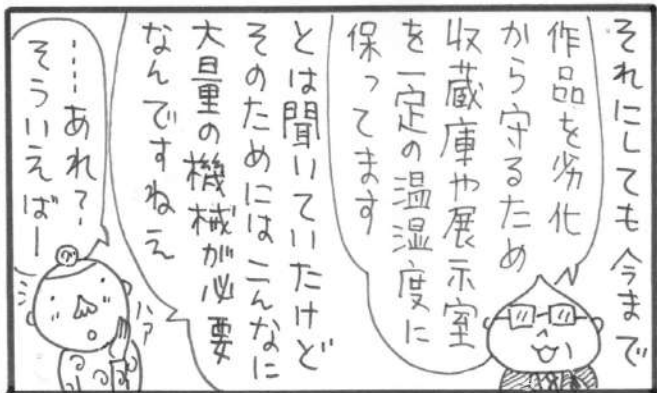 それにしても今まで
作品を劣化
から守るため
収蔵庫や展示室
を一定の温湿度に
保ってます
とは聞いていたけど
そのためにはこんなに
大量の機械が必要
なんですねえ
……あれ?
そういえばー
ハァ